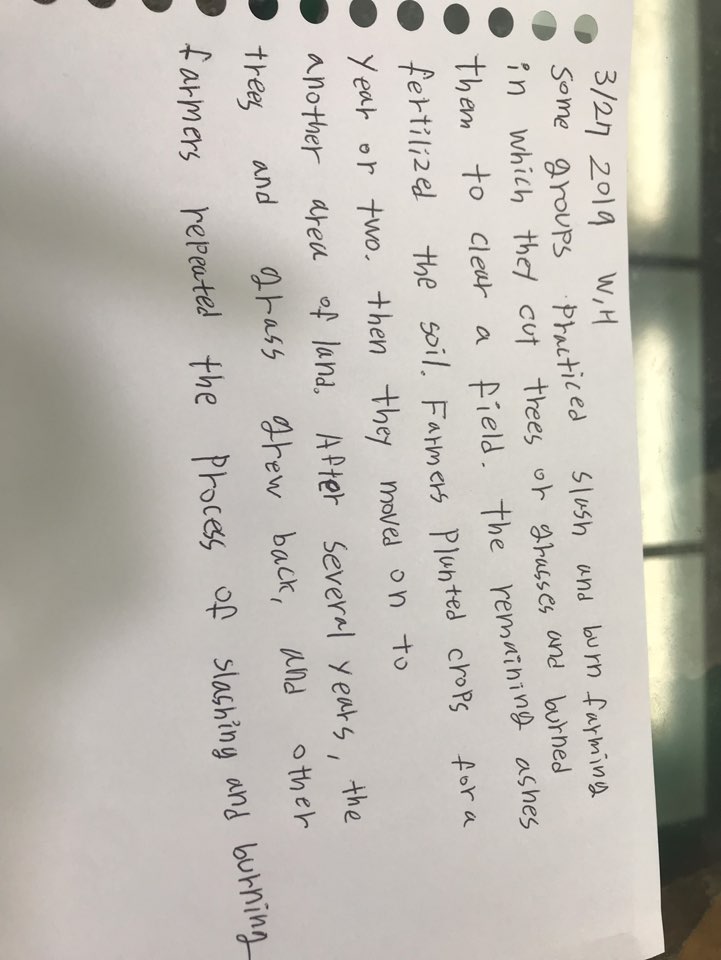 3/27 2019 W,H
Some groups practiced slash and burn farming
in which they cut trees or grasses and burned
them to clear a field. the remaining ashes
fertilized the soil. Farmers planted crops for a
year or two. then they moved on to
another area of land. After several years, the
trees and grass grew back, and other
farmers repeated the process of slashing and burning